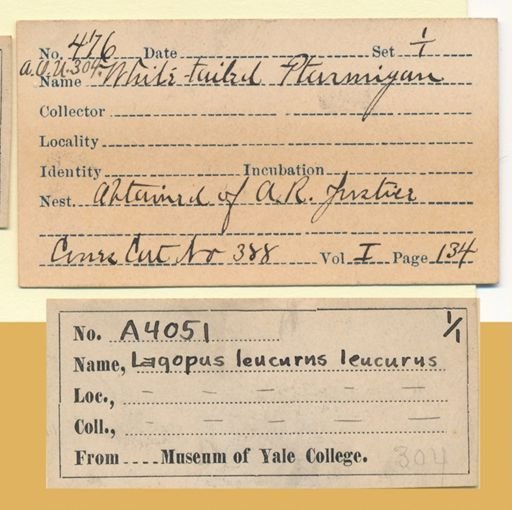 No. 476 Date Set 1/1
A.O.U. 304.
Name White-tailed Ptarmigan
Collector
Locality
Identity Incubation
Nest. Obtained of A.R. Justice
Cat No 388 Vol I Page 134
No. A4051 1/1
Name, Lagopus leucurus leucurus
Loc., – – – – –
Coll., – – – – –
From .... Museum of Yale College. 304